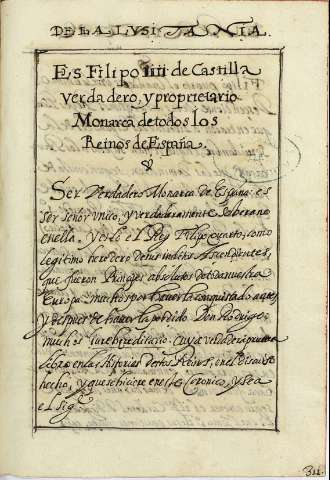 DE LA LVSITANIA.
Es Filipo IIII de Castilla
verdadero, y proprietario
Monarca de todos los
Reinos de España.
Ser Verdadero Monarca de España es
ser señor vnico, y verdaderamente soberano
en ella. y eslo el Rey Filipo quarto, como
legitimo heredero de muchos Ascendientes,
que fueron Principes absolutos de toda nuestra
Europa. muchos por hauer la conquistado antes,
y despues de hauer la perdido Don Rodrigo:
muchos iure hereditario. cuya verdad
en las historias destos Reinos, en el discurso
hecho, y que se hiciere en este Coronico, y sea
el sig.e
311.